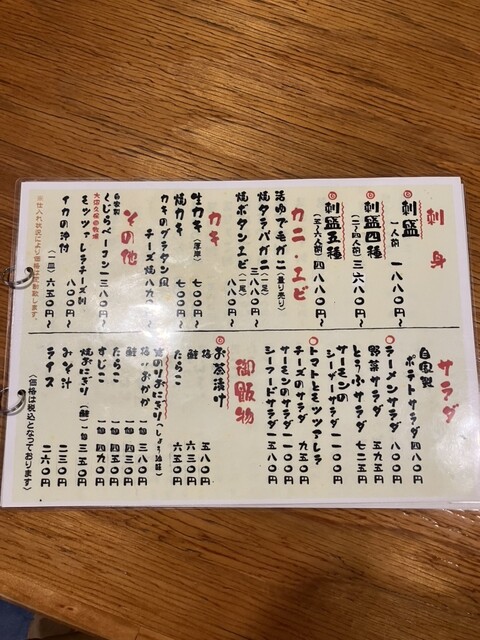 刺身
刺盛 一人前 一八八〇円〜
刺盛四種 (三〜四人前) 三六八〇円〜
刺盛五種 (五〜六人前) 四八八〇円〜
カニ・エビ
活ゆで毛ガニ (量り売り)
焼タラバガニ (一足) 三八八〇円〜
焼ボタンエビ (一尾) 一八八〇円〜
カキ
生カキ (厚岸) 七〇〇円〜
焼カキ 七〇〇円〜
カキのグラタン風
チーズ焼 八九〇円〜
その他
自家製
くじらベーコン 一三八〇円〜
大田久保の牧場
モッツァレラチーズ刺
一八〇〇円〜
イカの沖付 (一匹) 六五〇円〜
※仕入れ状況により価格は変動致します。
サラダ
自家製
ポテトサラダ 四八〇円
ラーメンサラダ 八〇〇円
野菜サラダ 五九五円
とうふサラダ 七二五円
サーモンの
シーザーサラダ 一一〇〇円
トマトとモッツァレラ
チーズのサラダ 九五〇円
サーモンのサラダ 一一〇〇円
シーフードサラダ 一一〇〇円
御飯物
お茶漬け
梅 五八〇円
鮭 六三〇円
たらこ 六五〇円
焼のりおにぎり (しょう油味)
梅・おかか 一個 三八〇円
鮭 一個 四三〇円
たらこ 一個 四五〇円
すじこ 一個 四九〇円
焼おにぎり (鮭) 一個 四五〇円
みそ汁 二三〇円
ライス 二六〇円
(価格は税込となっております)